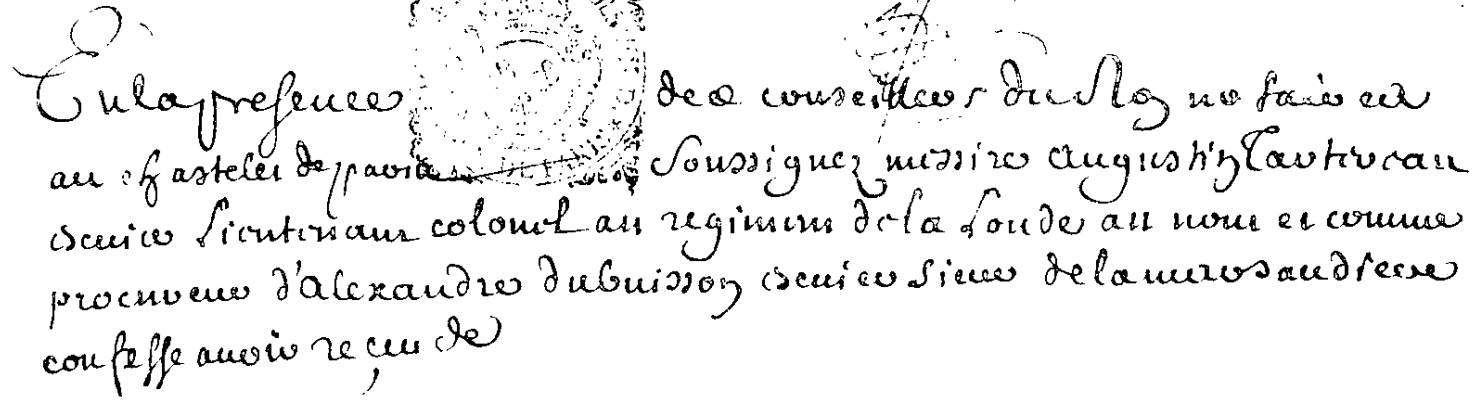 En la presence des conseillers du Roy notaires
au chastelet de paris soussignez messire Augustin
escuier Lieutenant colonel au regiment de la Londe au nom et comme
procureur d'Alexandre dubuisson escuier sieur de la
confesse auoir reçeu de